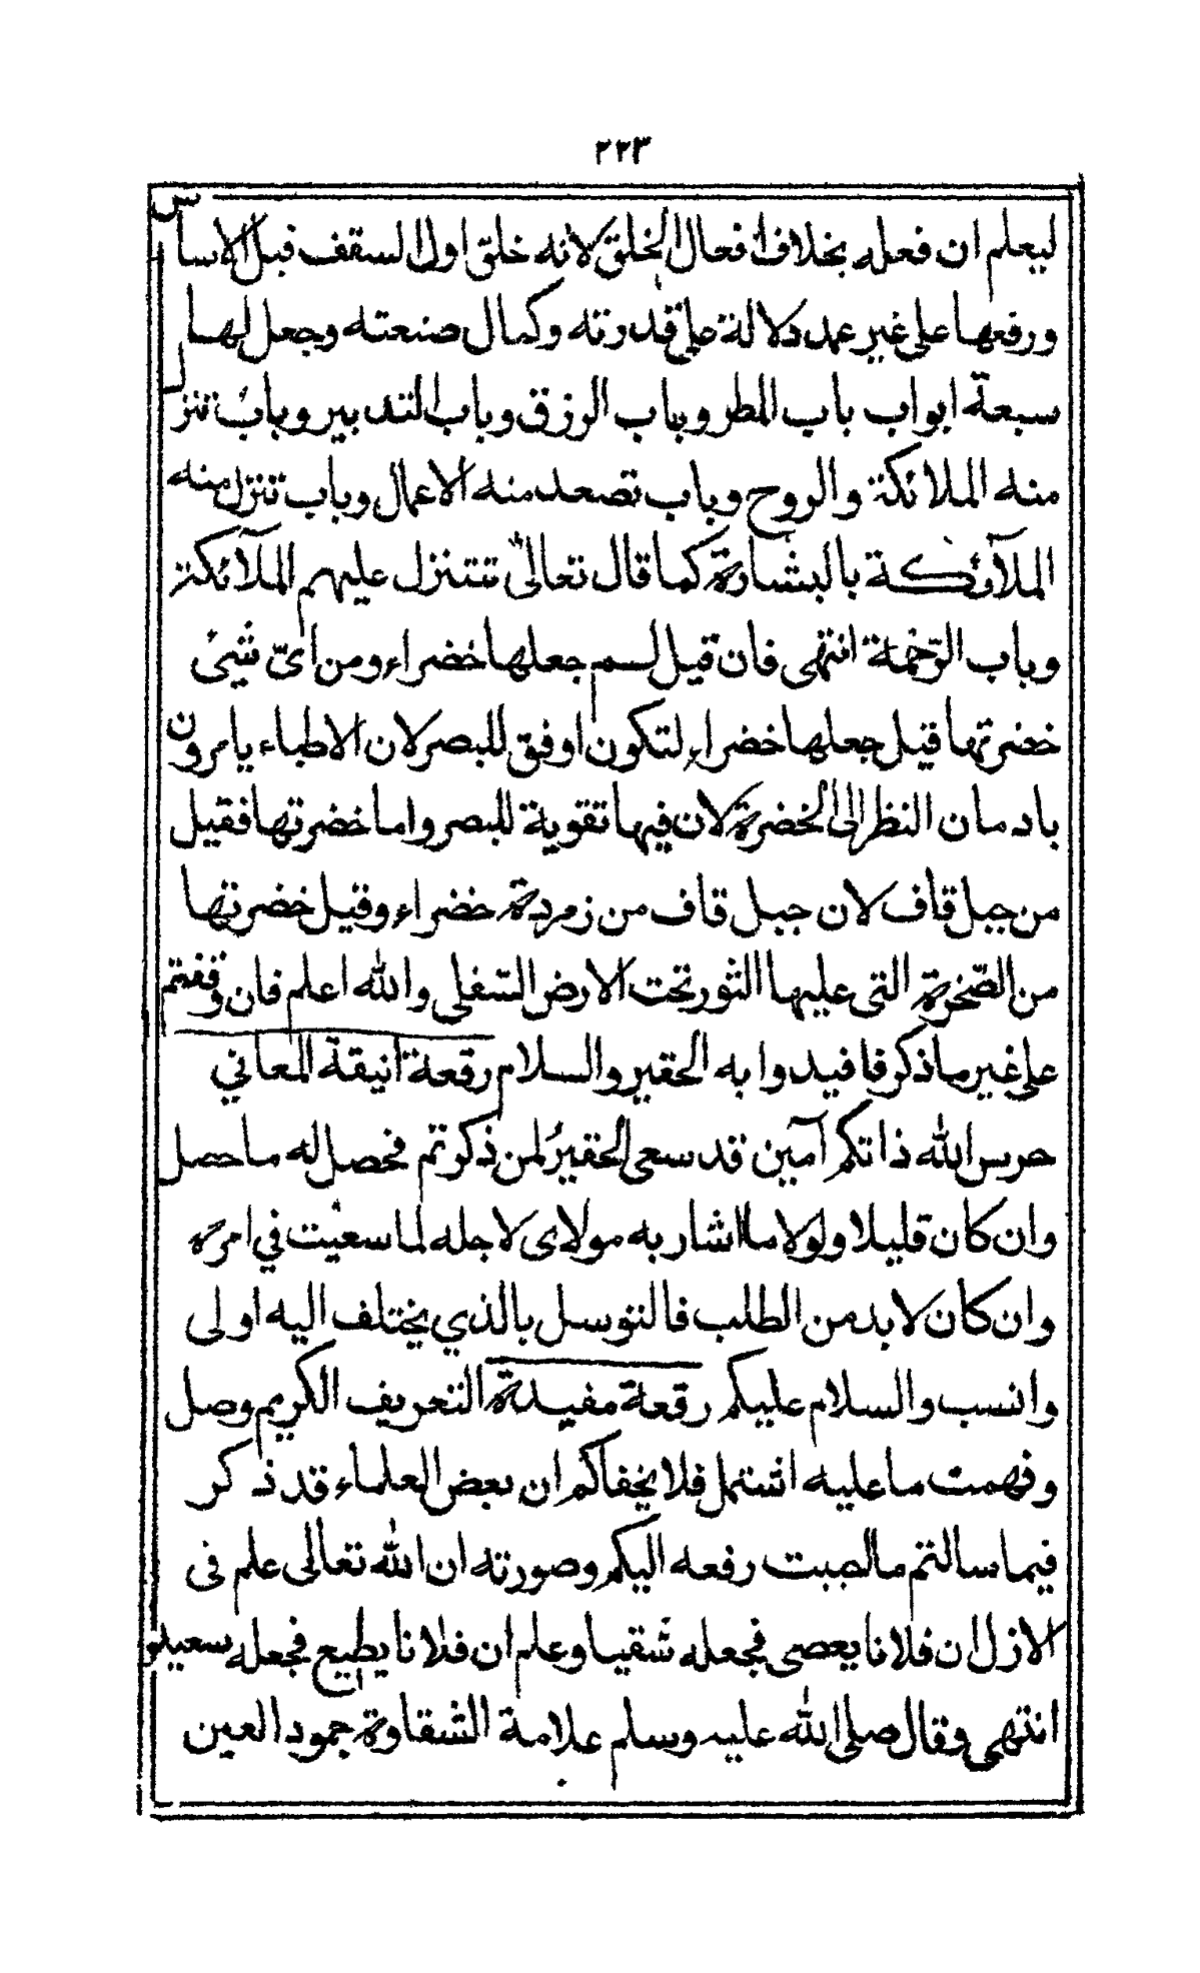 ٢٢٣
ليعلم ان فعله بخلاف افعال الخلق لانه خلق اول السقف قبل الاساس
ورفعها على غير عمد دلالة على قدرته وكمال صنعته وجعل لها
سبعة ابواب باب المطر وباب الرزق وباب التدبير وباب تنزل
منه الملائكة والروح وباب تصعد منه الاعمال وباب تنزل منه
الملآئكة بالبشارة كما قال تعالى تتنزل عليهم الملآئكة
وباب الرّحمة انتهى فان قيل لسم جعلها خضراء ومن اىّ شيئ
خضرتها قيل جعلها خضراء لتكون اوفق للبصر لان الاطباء يامرون
بادمان النظر الى الخضرة لان فيها تقوية للبصر واما خضرتها فقيل
من جبل قاف لان جبل قاف من زمردة خضراء وقيل خضرتها
من الصّخرة التى عليها الثور تحت الارض السّفلى والله اعلم فان وقفتم
على غير ما ذكر فافيدوا به الحقير والسلام رقعة انيقة المعاني
حرس الله ذاتكم آمين قد سعى الحقير لمن ذكرتم فحصل له ما حصل
وان كان قليلا ولولا ما اشار به مولاى لاجله لما سعيت في امره
وان كان لا بد من الطلب فالتوسل بالذي يختلف اليه اولى
وانسب والسلام عليكم رقعة مفيدة التعريف الكريم وصل
وفهمت ما عليه اشتمل فلا يخفاكم ان بعض العلماء قد ذكر
فيما سالتم ما لصبت رفعه اليكم وصورته ان الله تعالى علم فى
الازل ان فلانا يعصى فجعله شقيا وعلم ان فلانا يطيع فجعله سعيدا
انتهى وقال صلى الله عليه وسلم علامة الشقاوة جمود العين